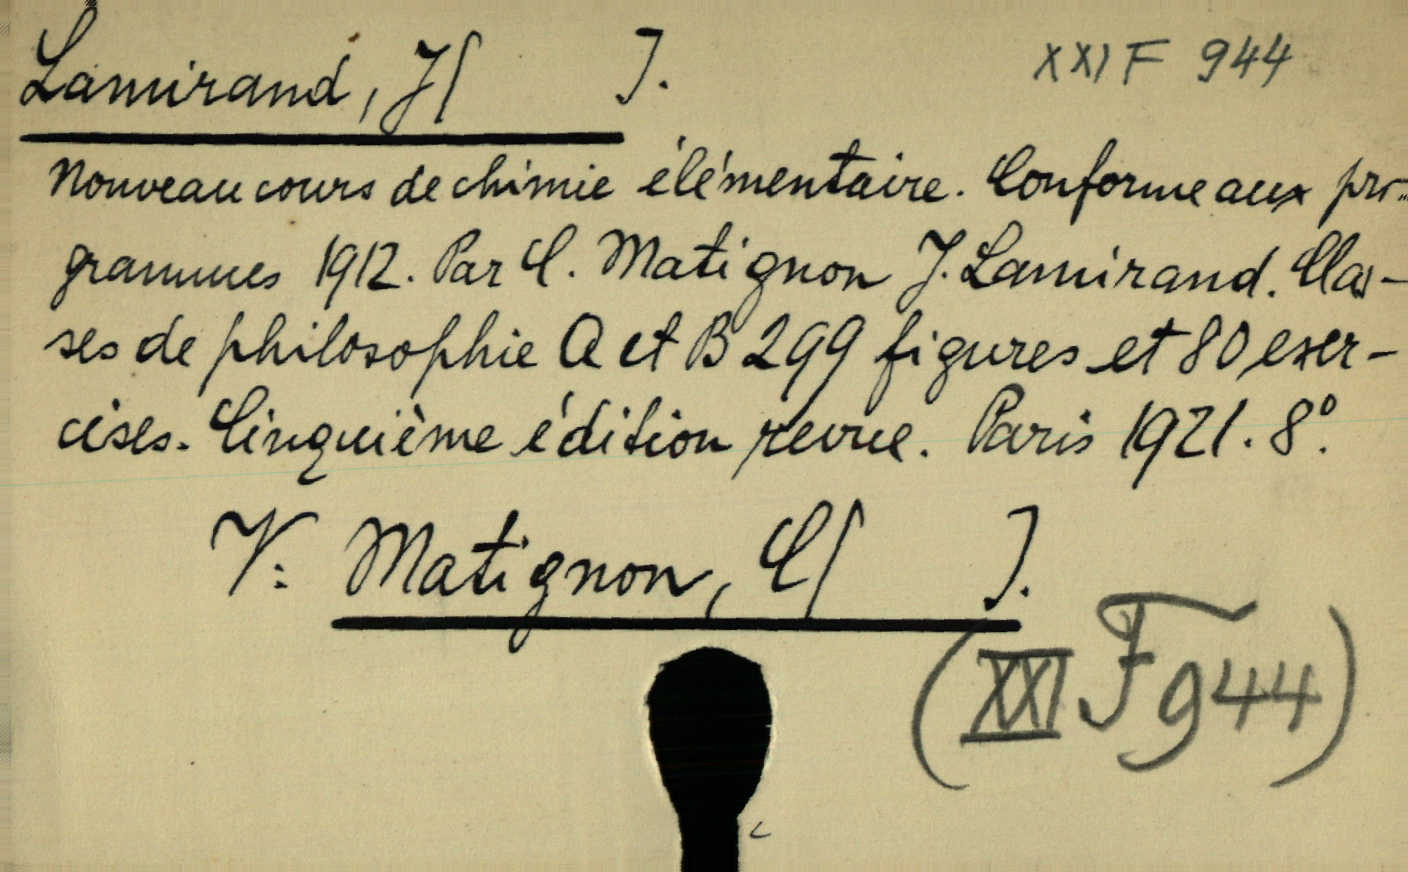 Lamirand, J[ ]. XXI F 944
Nouveau cours de chimie élémentaire. Conforme aux pro-
grammes 1912. Par C. Matignon J. Lamirand. Clas-
ses de philosophie A et B 299 figures et 80 exer-
cises. Cinquième édition revue. Paris 1921. 8º.
V: Matignon, C[ ].
(XXI F 944)